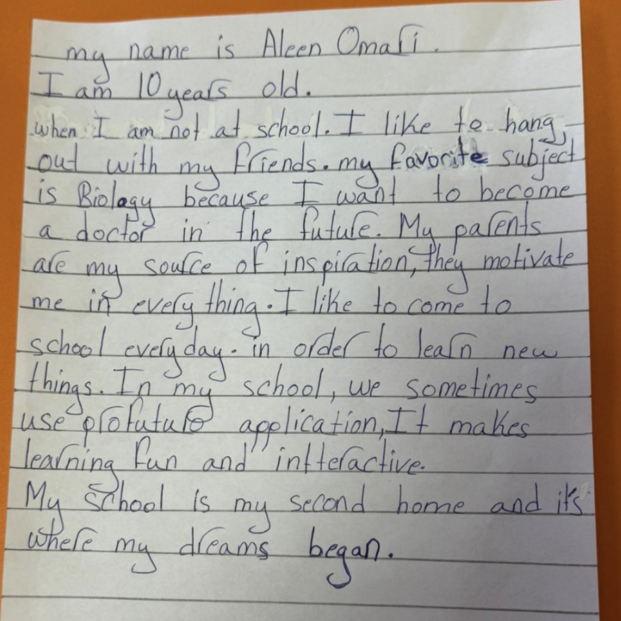 my name is Aleen Omari.
I am 10 years old.
when I am not at school. I like to hang
out with my friends. my favorite subject
is Biology because I want to become
a doctor in the future. My parents
are my source of inspiration, they motivate
me in every thing. I like to come to
school everyday. in order to learn new
things. In my school, we sometimes
use profuturo application, It makes
learning fun and intteractive.
My school is my second home and it's
where my dreams began.